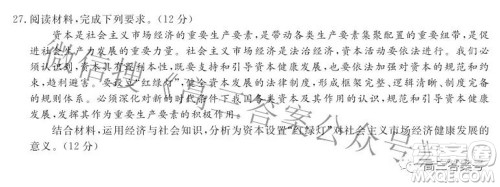 27.阅读材料,完成下列要求。(12分)
资本是社会主义市场经济的重要生产要素,是带动各类生产要素集聚配置的重要纽带,是促
进社会生产力发展的重要力量。社会主义市场经济是法治经济,资本活动要依法进行。我们必
须认识到,资本具有本性,既要支持和引导资本健康发展,也要依法加强对资本的规范和约
束,趋利避害。要设立“红绿灯”,健全资本发展的法律制度,形成框架完整、逻辑清晰、制度完备
的规则体系。必须深化对新的时代条件下我国各类资本及其作用的认识,规范和引导资本健康
发展,发挥其作为重要生产要素的积极作用。
结合材料,运用经济与社会知识,分析为资本设置“红绿灯”对社会主义市场经济健康发展的
意义。(12分)
微信搜《高三答案公众号》
高三答案号